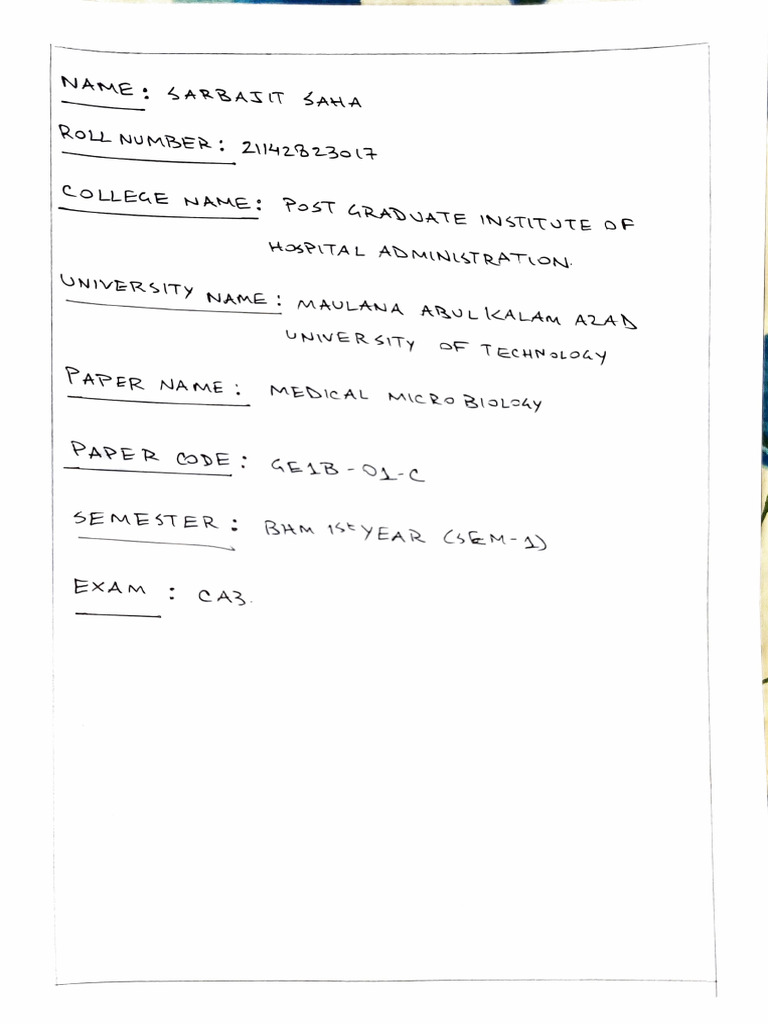 NAME: SARBAJIT SAHA
ROLL NUMBER: 21142823017
COLLEGE NAME: POST GRADUATE INSTITUTE OF
HOSPITAL ADMINISTRATION.
UNIVERSITY NAME: MAULANA ABUL KALAM AZAD
UNIVERSITY OF TECHNOLOGY
PAPER NAME: MEDICAL MICROBIOLOGY
PAPER CODE: GE1B-01-C
SEMESTER: BHM 1st YEAR (SEM-1)
EXAM: CA3.